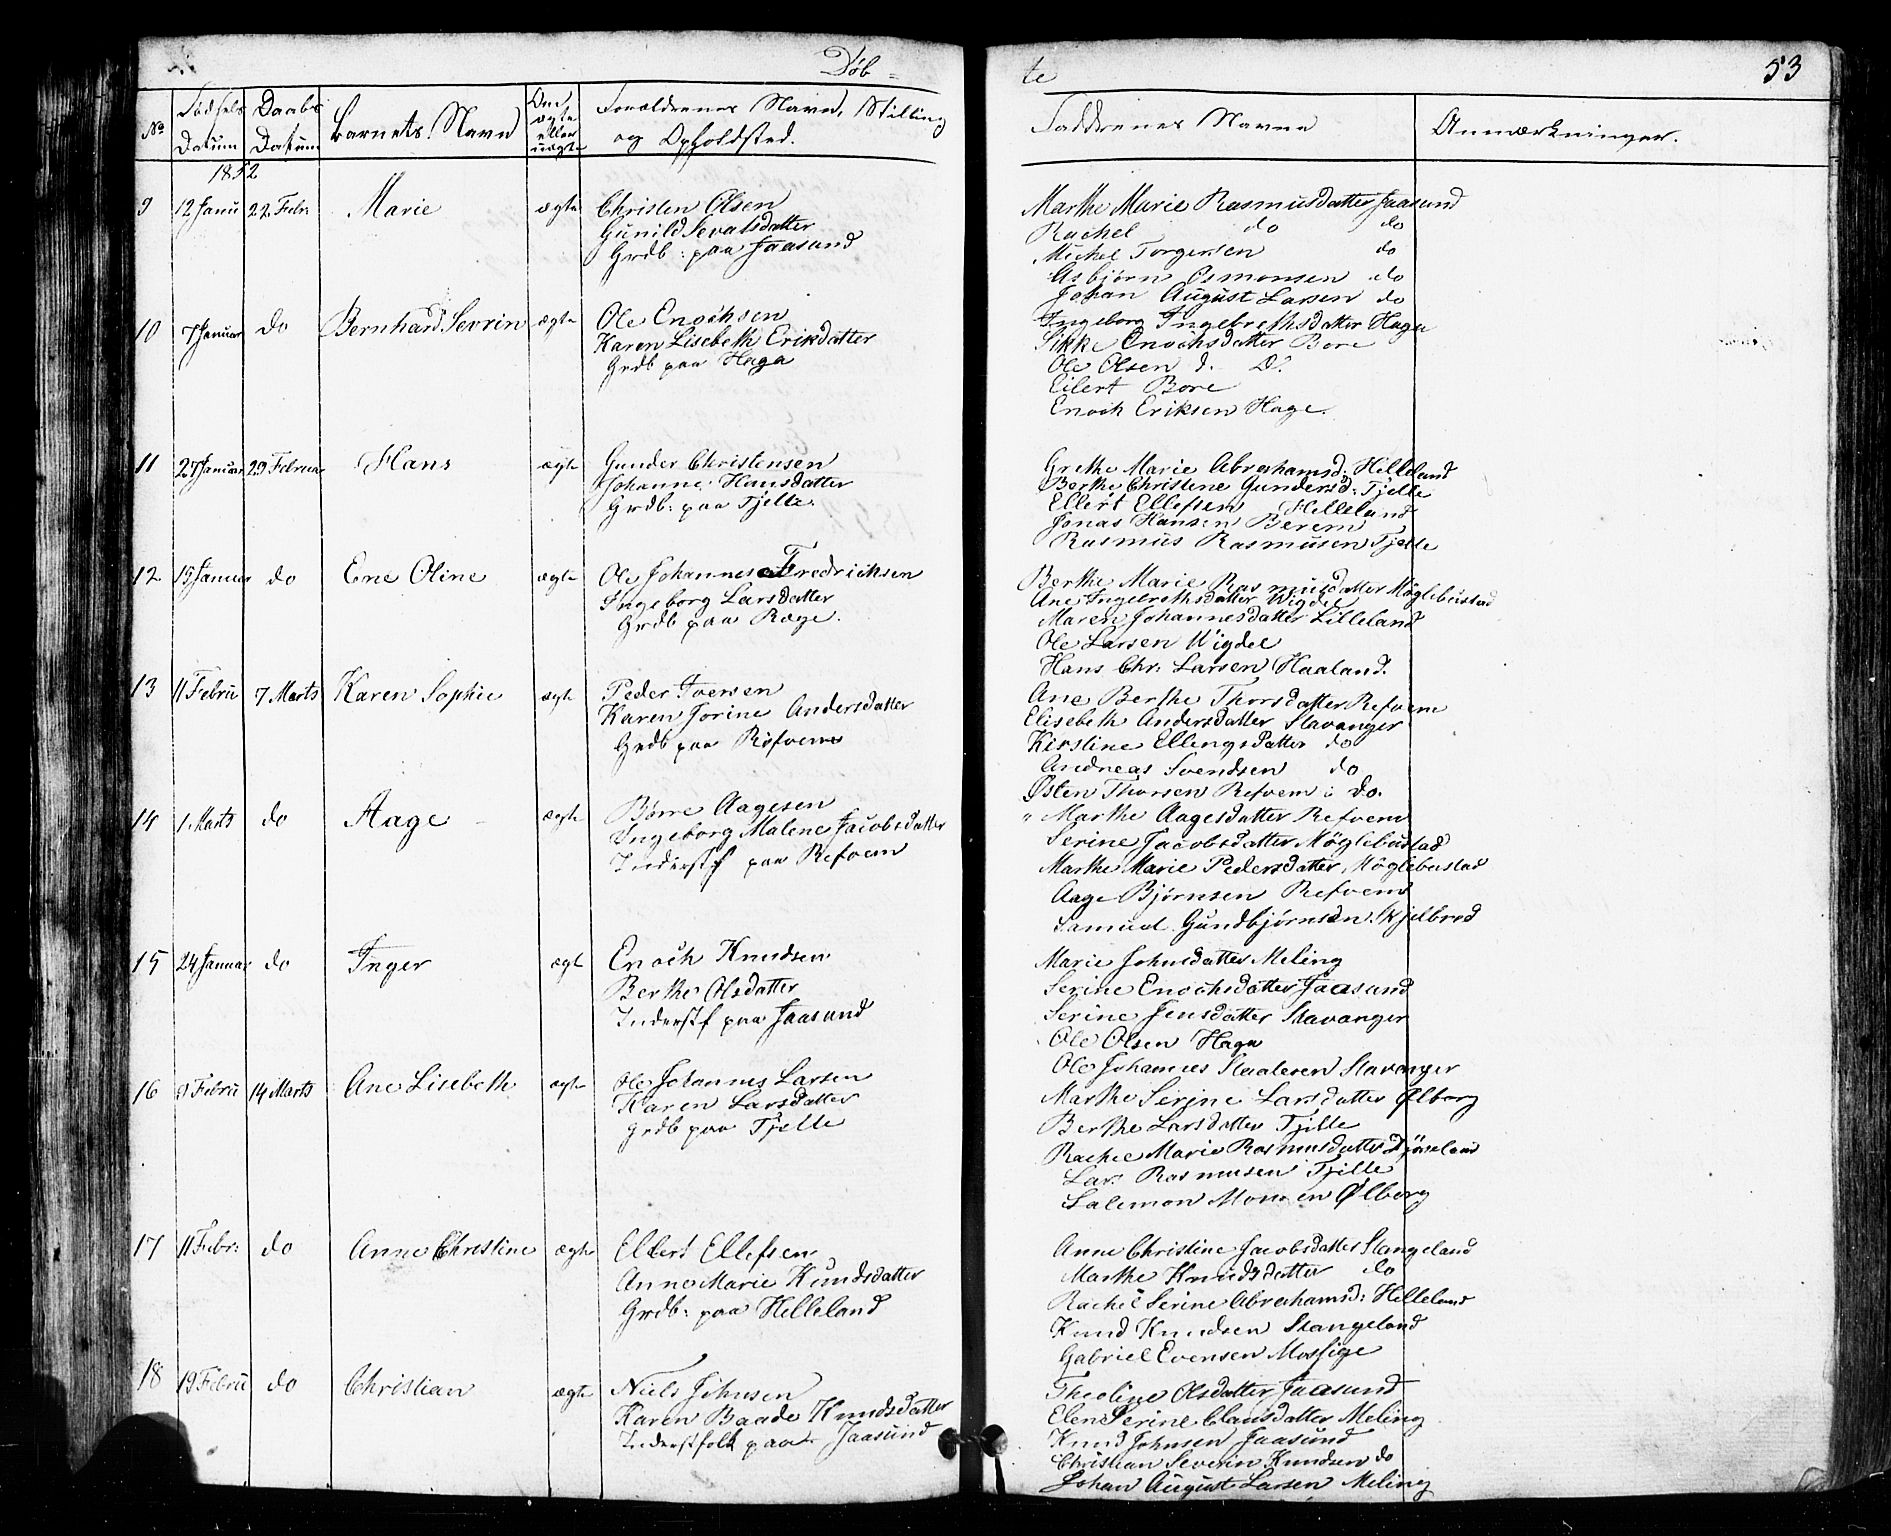 Døb-
te
53
No
Fødsels Datum
Daabs Datum
Barnets Navn
Om ægte eller uægte
Forældrenes Navn, Stilling og Opholdsted.
Faddrenes Navne
Anmærkninger.
1852
9 12 Janu 22 Febr Marie ægte Christen Olsen
Gunild Sevatsdatter
Grdb: paa Jaasund
Marthe Marie Rasmusdatter Jaasund
Rachel do do
Michel Torgersen do
Asbjørn Osmonsen do
Johan August Larsen do
10 7 Januar do Bernhard Sevrin ægte Ole Enochsen
Karen Lisebeth Eriksdatter
Grdb paa Haga
Ingeborg Ingebrethsdatter Haga
Sikke Enochsdatter Bore
Ole Olsen d. D.
Eilert Bore
Enoch Eriksen Hage.
11 27 Januar 29 Februar Hans ægte Gunder Christensen
Johanne Hansdatter
Grdb: paa Tjelte.
Grethe Marie Abrahamsd: Helleland
Berthe Christine Gundersd: Tjelte
Ellert Ellefsen Helleland
Jonas Hansen Berem
Rasmus Rasmusen Tjelte
12 15 Januar do Ene Oline ægte Ole Johannes Fredriksen
Ingeborg Larsdatter
Grdb paa Ræge.
Berthe Marie Rasmusdatter Møglebustad
Ane Ingebrethsdatter Wigdel
Maren Johannesdatter Lilleland
Ole Larsen Wigdel
Hans Chr: Larsen Haaland.
13 11 Febru 7 Marts Karen Sophie ægte Peder Iversen
Karen Jorine Andersdatter
Grdb paa Røfvem
Ane Berthe Thorsdatter Refvem
Elisebeth Andersdatter Stavanger
Kirstine Ellingsdatter do
Andreas Svendsen do
Østen Thorsen Refvem: do.
14 1 Marts do Aage ægte Børre Aagesen
Ingeborg Malene Jacobsdatter
Inderstf paa Refvem
" Marthe Aagesdatter Refvem
Serine Jacobsdatter Møglebustad
Marthe Marie Pedersdatter Møglebustad
Aage Bjørnsen Refvem
Samuel Gundbjørnsen Skjelbred
15 24 Januar do Inger ægt Enoch Knudsen
Berthe Olsdatter
Inderstf paa Jaasund
Marie Johnsdatter Meling
Serine Enochsdatter Jaasund
Serine Jensdatter Stavanger
Ole Olsen Haga
Ole Johannes Staalesen Stavanger
16 9 Febru 14 Marts Ane Lisebeth ægte Ole Johannes Larsen
Karen Larsdatter
Grdb paa Tjelte
Marthe Serine Larsdatter Ølborg
Berthe Larsdatter Tjelte
Rachel Marie Rasmusdatter
Lars Rasmusen Tjelte
Salemon Monsen Ølborg
17 11 Febr: do Anne Christine ægte Ellert Ellefsen
Anne Marie Knudsdatter
Grdb: paa Helleland
Anne Christine Jacobsdatter Stangeland
Marthe Knudsdatter do
Rachel Serine Abrahamsd: Helleland
Knud Knudsen Stangeland
Gabriel Evensen Mossige
18 19 Febru do Christian ægte Niels Johnsen
Karen Baade Knudsdatter
Inderstfolk paa Jaasund
Theoline Olsdatter Jaasund
Elene Serine Clausdatter Meling
Knud Johnsen Jaasund
Christian Severin Knudsen do
Johan August Larsen Meling